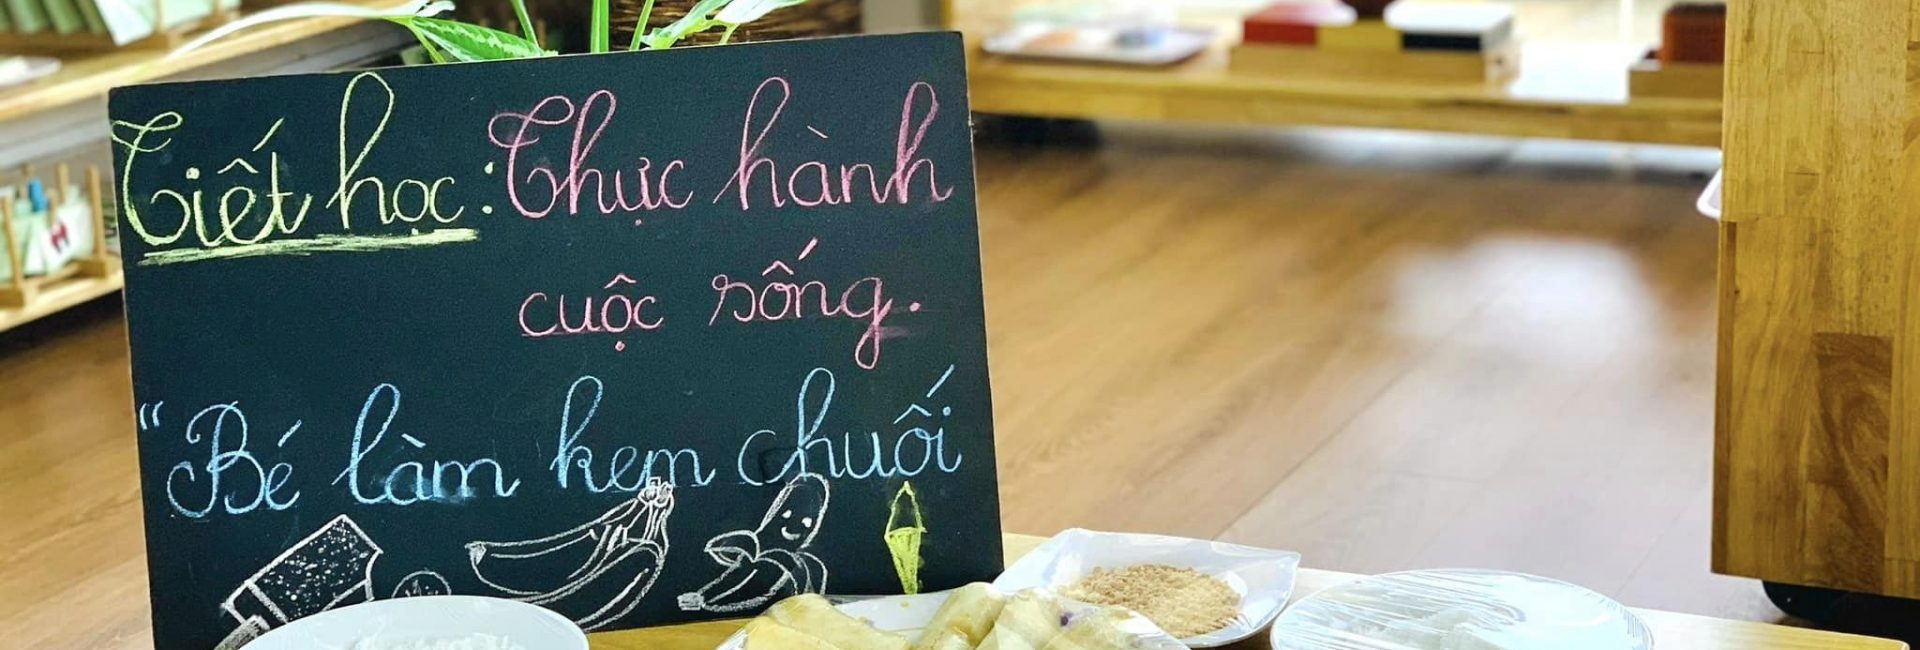 Tiết học: Thực hành
cuộc sống.
"Bé làm kem chuối